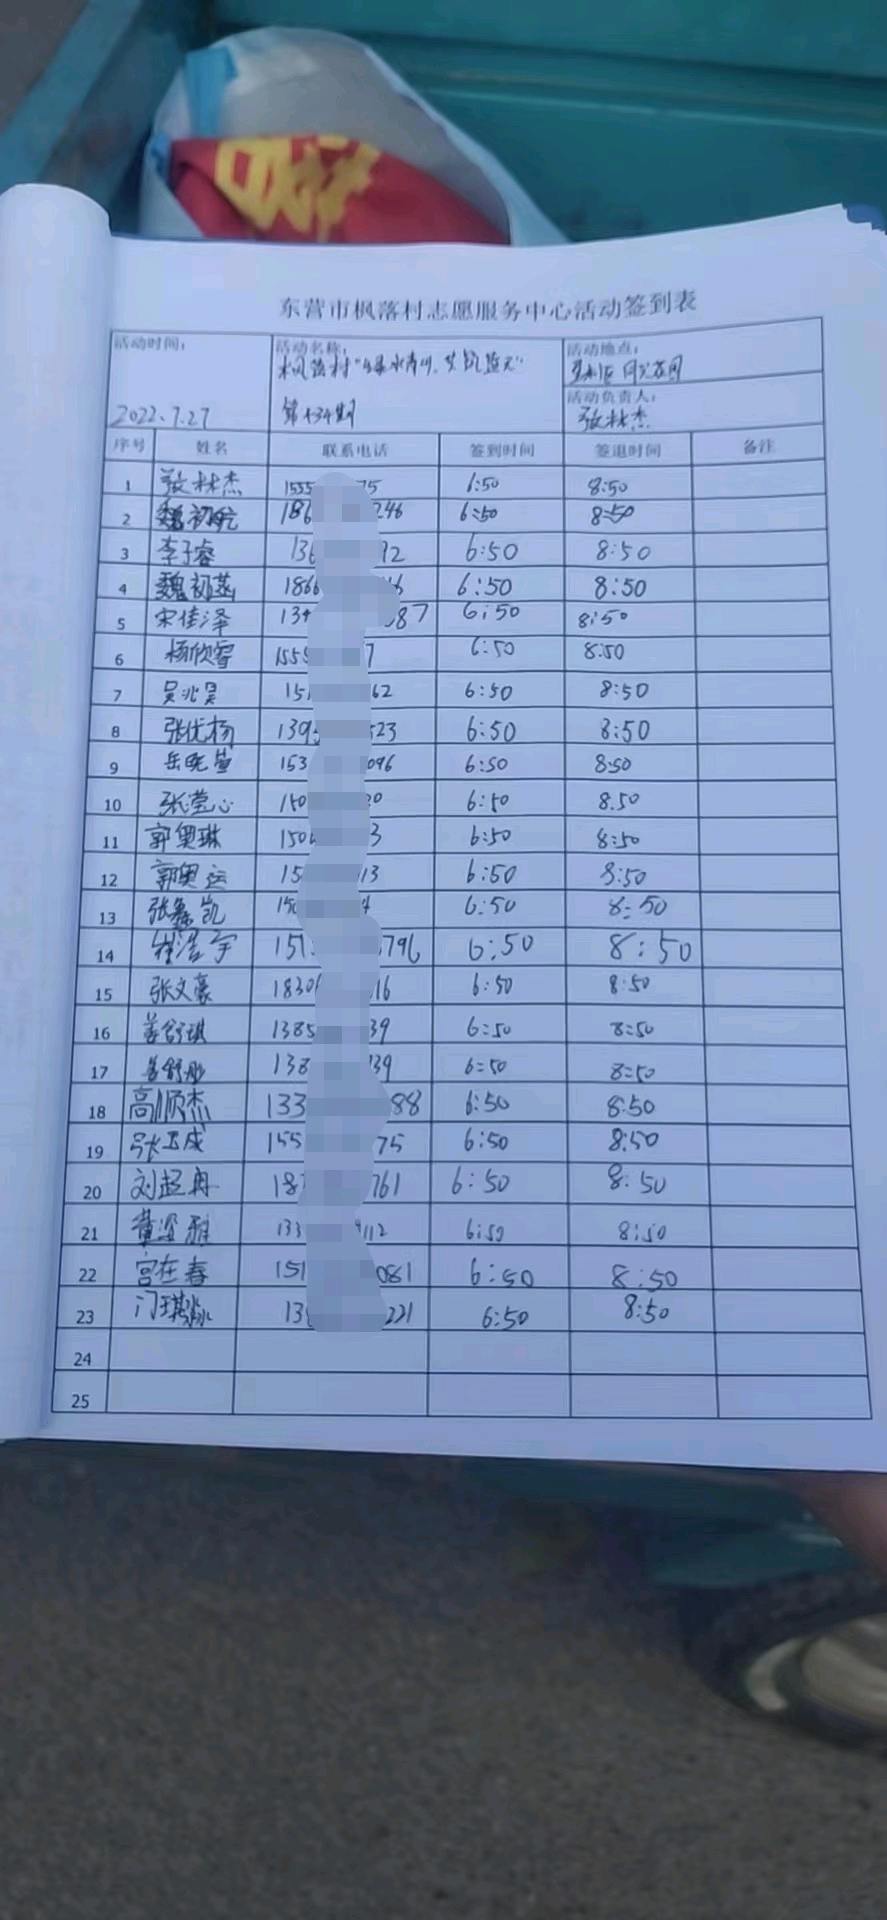 东营市枫落村志愿服务中心活动签到表
活动时间： 活动名称： 活动地点：
枫落村"绿水青山，
2022.7.27 第434期 活动负责人：
张林杰
序号 姓名 联系电话 签到时间 签退时间 备注
1 张林杰 1555 75 6:50 8:50
2 魏初航 186 246 6:50 8:50
3 李子睿 136 92 6:50 8:50
4 魏初菡 1866 46 6:50 8:50
5 宋佳泽 134 387 6:50 8:50
6 杨欣睿 1555 7 6:50 8:50
7 吴兆昊 151 62 6:50 8:50
8 张优杨 139 523 6:50 8:50
9 岳晓萱 153 096 6:50 8:50
10 张莹心 150 0 6:50 8.50
11 郭奥琳 150 3 6:50 8:50
12 郭奥运 15 13 6:50 8:50
13 张鑫凯 150 4 6:50 8:50
14 崔浩宇 151 796 6:50 8:50
15 张文豪 1830 16 6:50 8:50
16 姜舒琪 1385 39 6:50 8:50
17 姜舒彤 138 39 6:50 8:50
18 高顺杰 133 88 6:50 8:50
19 张玉成 155 75 6:50 8:50
20 刘起冉 18 761 6:50 8:50
21 董姿雅 133 112 6:50 8:50
22 宫在春 151 081 6:50 8:50
23 门琪淼 13 221 6:50 8:50
24
25